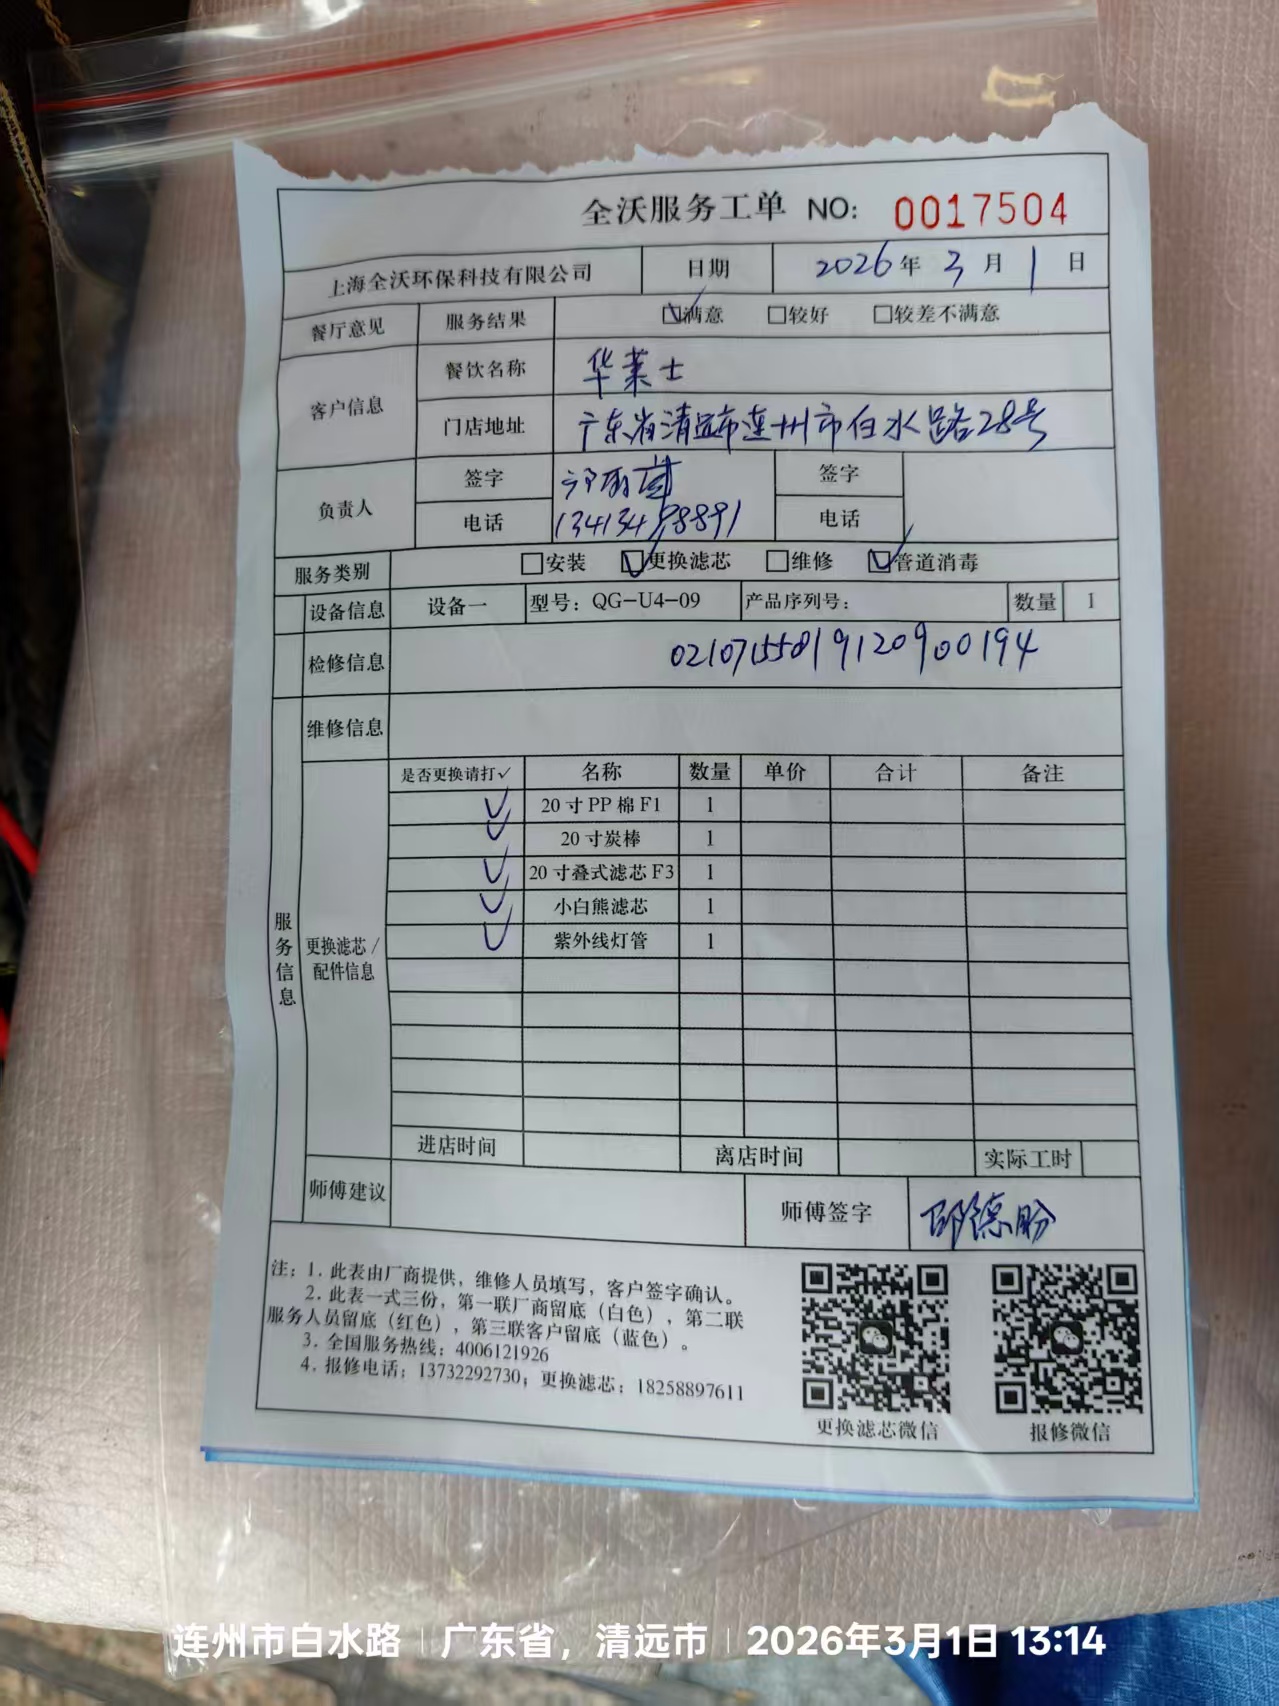 全沃服务工单 NO: 0017504
上海全沃环保科技有限公司 日期 2026年3月1日
餐厅意见 服务结果 ☑满意 □较好 □较差不满意
客户信息 餐饮名称 华莱士
门店地址 广东省清远市连州市白水路28号
负责人 签字 签字
电话 电话
服务类别 □安装 ☑更换滤芯 □维修 ☑管道消毒
设备信息 设备一 型号：QG-U4-09 产品序列号： 数量 1
检修信息
维修信息
服务信息
更换滤芯/配件信息
是否更换请打✓ 名称 数量 单价 合计 备注
✓ 20寸PP棉F1 1
✓ 20寸炭棒 1
✓ 20寸叠式滤芯F3 1
✓ 小白熊滤芯 1
✓ 紫外线灯管 1
进店时间 离店时间 实际工时
师傅建议 师傅签字 邵德盼
注：1. 此表由厂商提供，维修人员填写，客户签字确认。
2. 此表一式三份，第一联厂商留底（白色），第二联
服务人员留底（红色），第三联客户留底（蓝色）。
3. 全国服务热线：4006121926
4. 报修电话；13732292730；更换滤芯；18258897611
更换滤芯微信 报修微信
连州市白水路 | 广东省，清远市 | 2026年3月1日 13:14